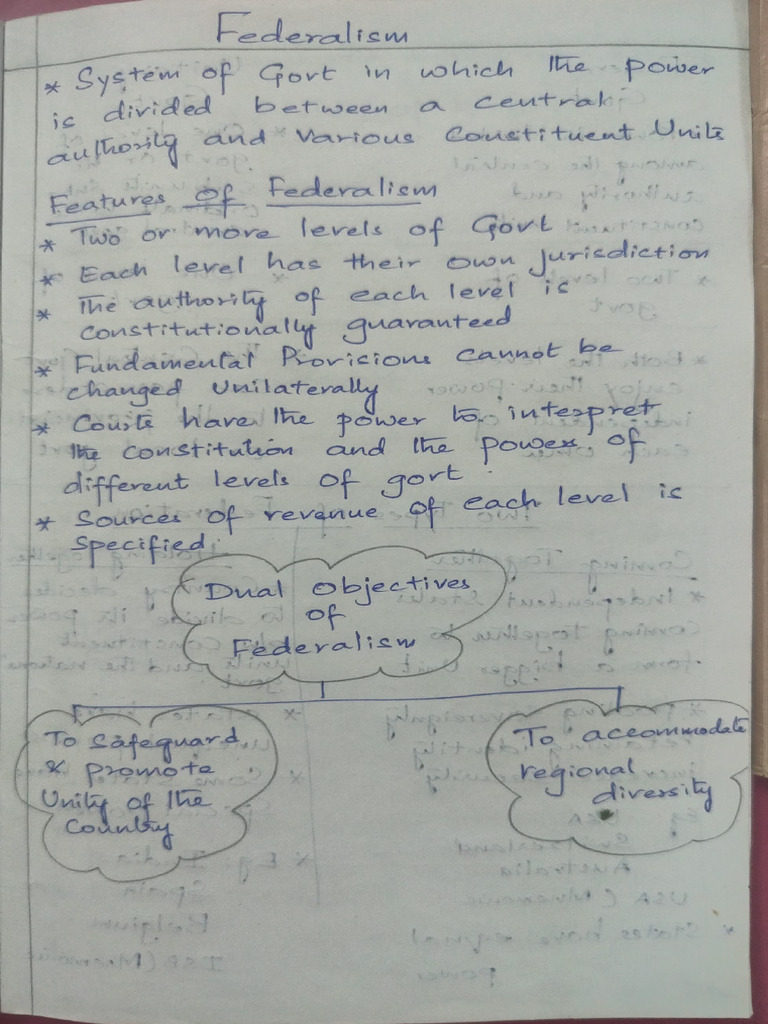 Federalism
* System of Govt in which the power
is divided between a central
authority and various constituent Units
Features of Federalism
* Two or more levels of Govt
* Each level has their own jurisdiction
* The authority of each level is
constitutionally guaranteed
* Fundamental Provicions cannot be
changed Unilaterally
* Courts have the power to interpret
the constitution and the power of
different levels of govt.
* Sources of revenue of each level is
specified.
Dual Objectives
of
Federalism
To safeguard
& promote
Unity of the
Country
To accommodate
regional
diversity